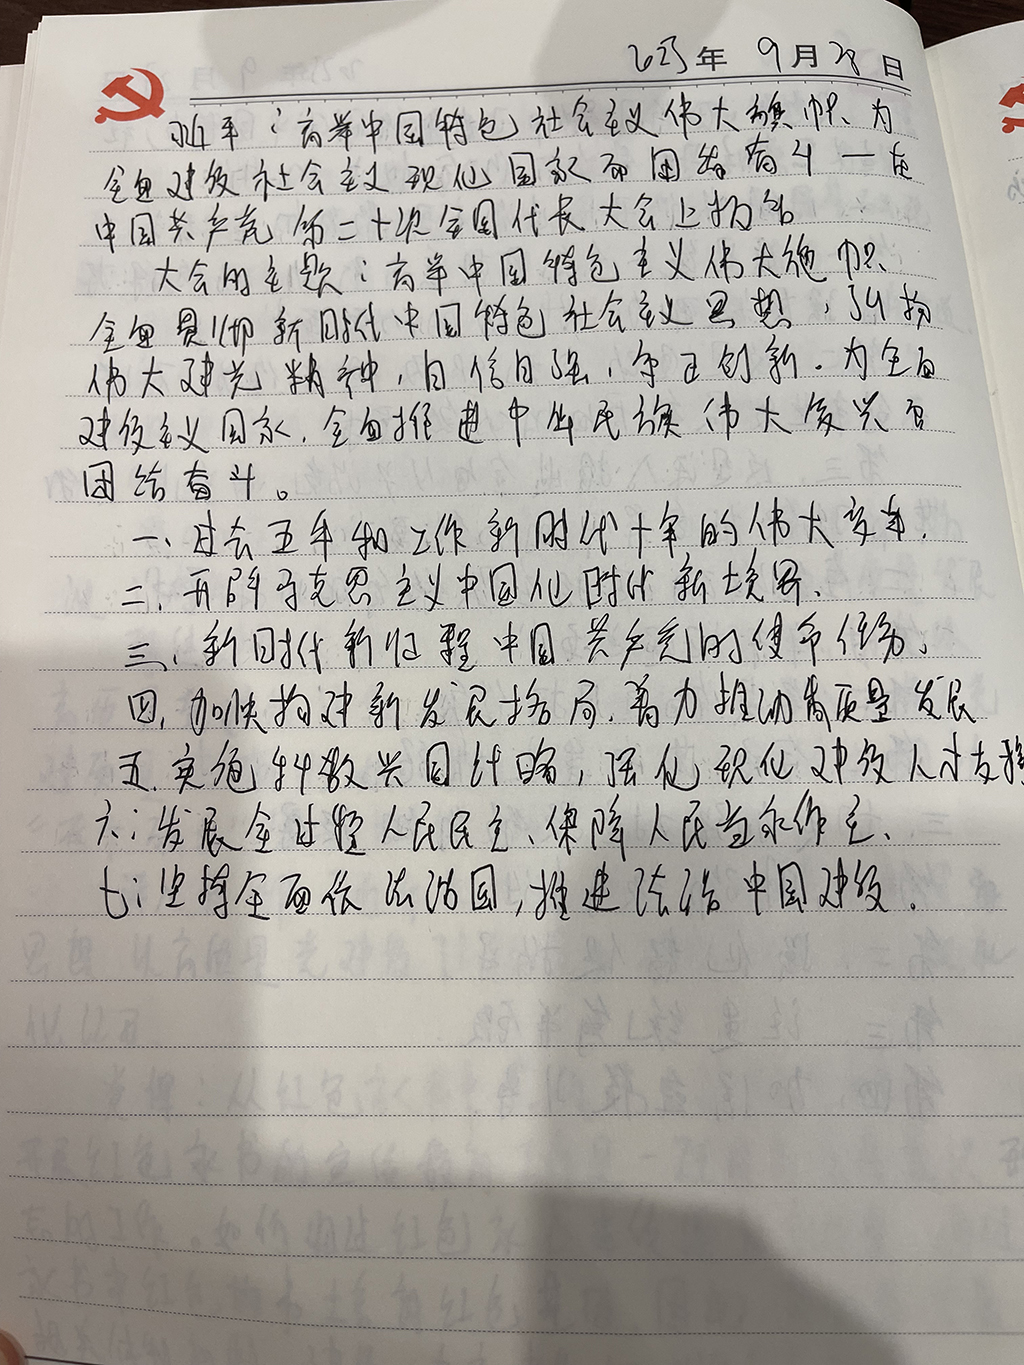 2023年 9月28日
近平：高举中国特色社会主义伟大旗帜 为
全面建设社会主义现代化国家而团结奋斗一在
中国共产党第二十次全国代表大会上报告
大会的主题：高举中国特色主义伟大旗帜
全面贯彻新时代中国特色社会主义思想，弘扬
伟大建党精神，自信自强，守正创新。为全面
建设主义国家，全面推进中华民族伟大复兴而
团结奋斗。
一、过去五年和工作新时代十年的伟大变革.
二、开辟马克思主义中国化时代新境界.
三、新时代新征程中国共产党的使命任务；
四，加快构建新发展格局，着力推动高质量发展
五.实施科教兴国战略，强化现代化建设人才支撑
六；发展全过程人民民主、保障人民当家作主、
七；坚持全面依法治国，推进法治中国建设.